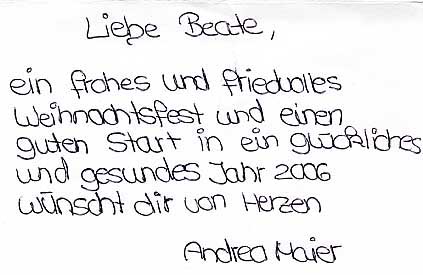 Liebe Beate,
ein frohes und friedvolles
Weihnachtsfest und einen
guten Start in ein glückliches
und gesundes Jahr 2006
wünscht dir von Herzen
Andrea Maier